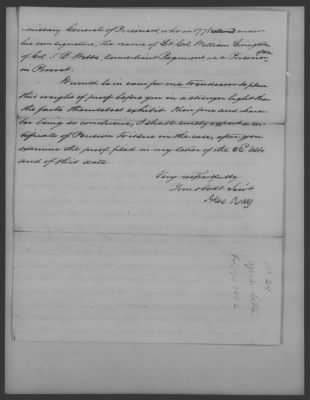 missary General of Prisoners, who in 177 under
his own signature, the name of Lt Col William Livingston
of Col. S. B. Webbs Connecticut Regiment, as a Prisoner,
in Provost.
It would be in vain for me to endeavor to place
this weight of proof before you in a stronger light than
the facts themselves exhibit. Their force and charac-
ter being so conclusive, I shall surely expect a cer-
tificate of Pension to issue in the case, upon you
examine the proof filed in my letter of the
and of this date
Very respectfully
Your obedt Servt
Alex. Ray